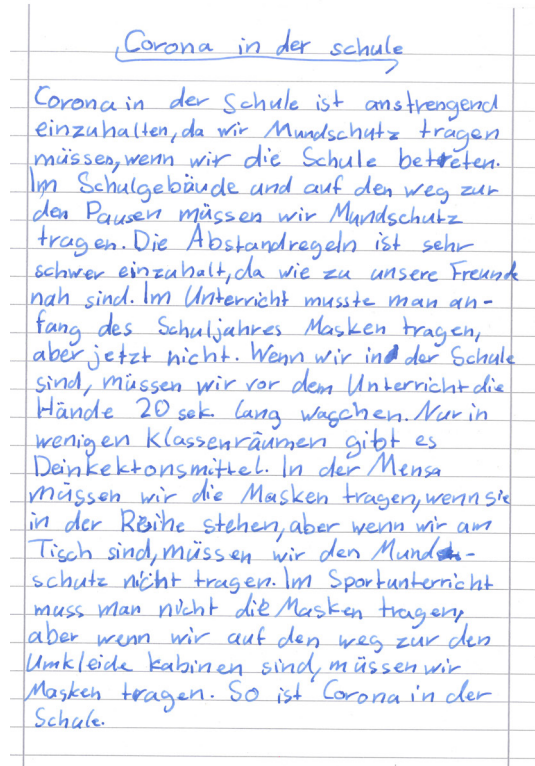 Corona in der schule
Corona in der Schule ist anstrengend
einzuhalten, da wir Mundschutz tragen
müssen, wenn wir die Schule betreten.
Im Schulgebäude und auf den weg zur
den Pausen müssen wir Mundschutz
tragen. Die Abstandregeln ist sehr
schwer einzuhalt, da wie zu unsere Freunde
nah sind. Im Unterricht musste man an-
fang des Schuljahres Masken tragen,
aber jetzt nicht. Wenn wir in der Schule
sind, müssen wir vor dem Unterricht die
Hände 20 sek. lang waschen. Nur in
wenigen Klassenräumen gibt es
Deinkektonsmittel. In der Mensa
müssen wir die Masken tragen, wenn sie
in der Reihe stehen, aber wenn wir am
Tisch sind, müssen wir den Mund-
schutz nicht tragen. Im Sportunterricht
muss man nicht die Masken tragen,
aber wenn wir auf den weg zur den
Umkleide kabinen sind, müssen wir
Masken tragen. So ist Corona in der
Schule.